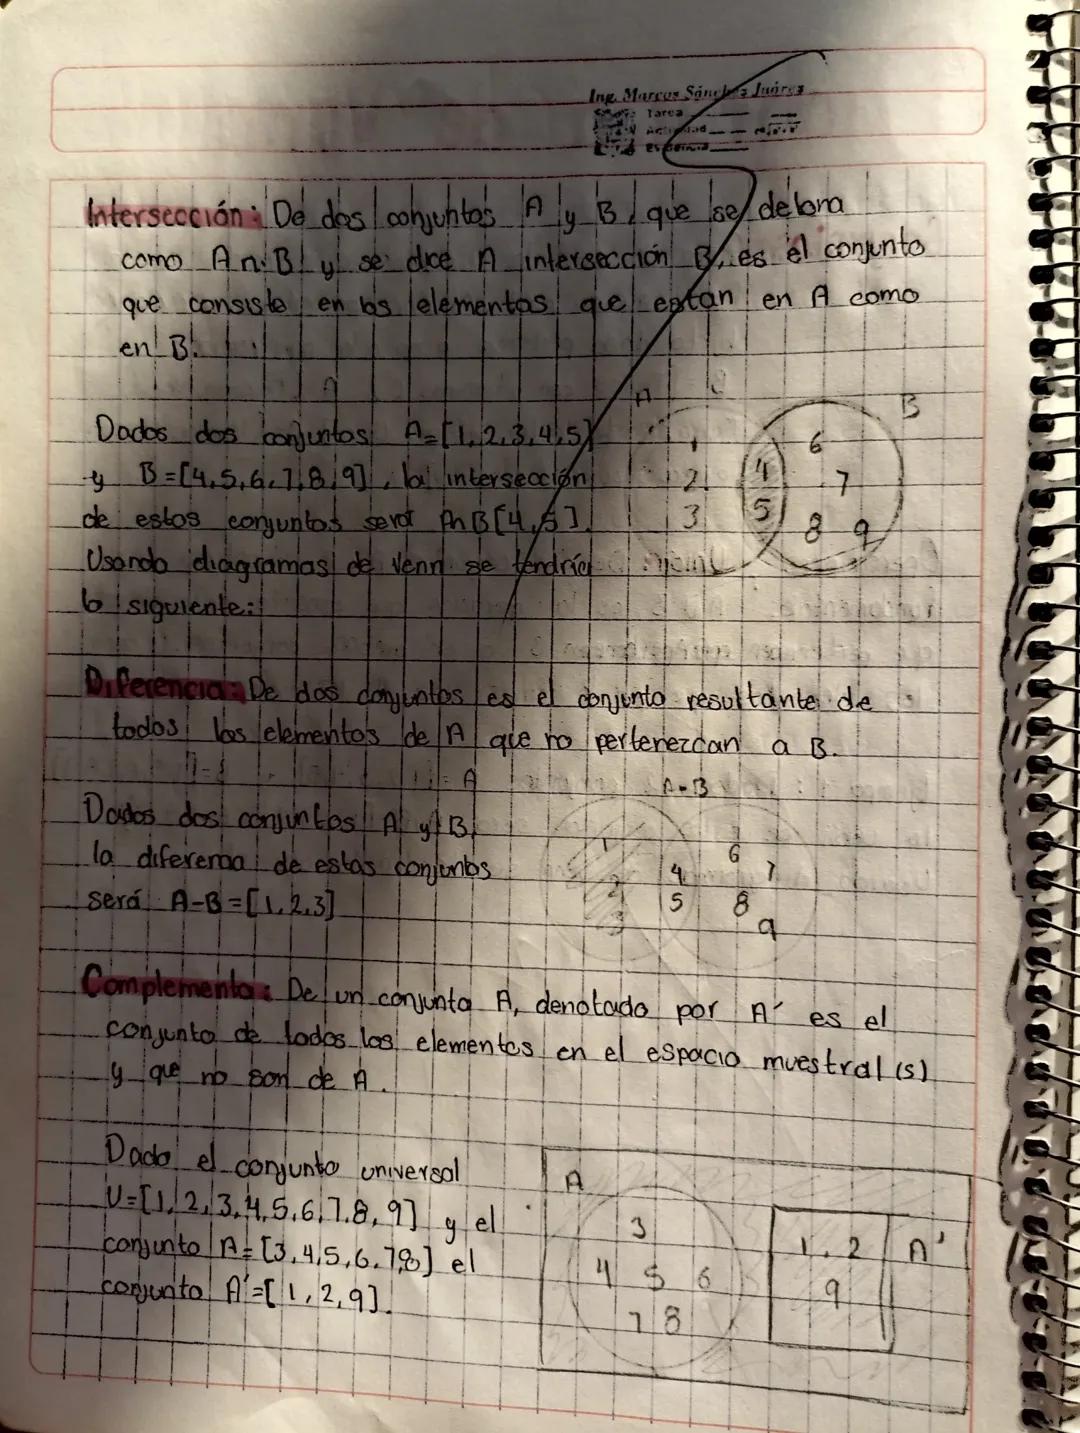 Ing. Marcos Sánchez Juárez
Tarea
Actividad
Evidencia
Intersección: De dos conjuntos A y B, que se debna
como A∩B y se dice A intersección B, es el conjunto
que consiste en los elementos que estan en A como
en B.
Dados dos conjuntos A=[1,2,3,4,5]
y B=[4,5,6,7,8,9], la intersección
de estos conjuntos será A∩B[4,5].
Usando diagramas de Venn se tendría
lo siguiente:
A B
1 6
2 4 7
3 5 8 9
Diferencia: De dos conjuntos es el conjunto resultante de
todos los elementos de A que no pertenezcan a B.
Dados dos conjuntos A y B,
la diferencia de estos conjuntos
será A-B=[1,2,3]
A-B
1 6
2 4 7
3 5 8
9
Complemento: De un conjunto A, denotado por A' es el
conjunto de todos los elementos en el espacio muestral (s)
y que no son de A.
Dado el conjunto universal
U=[1,2,3,4,5,6,7,8,9] y el
conjunto A=[3,4,5,6,7,8] el
conjunto A'=[1,2,9].
A
3
4 5 6
7 8
1, 2 A'
9